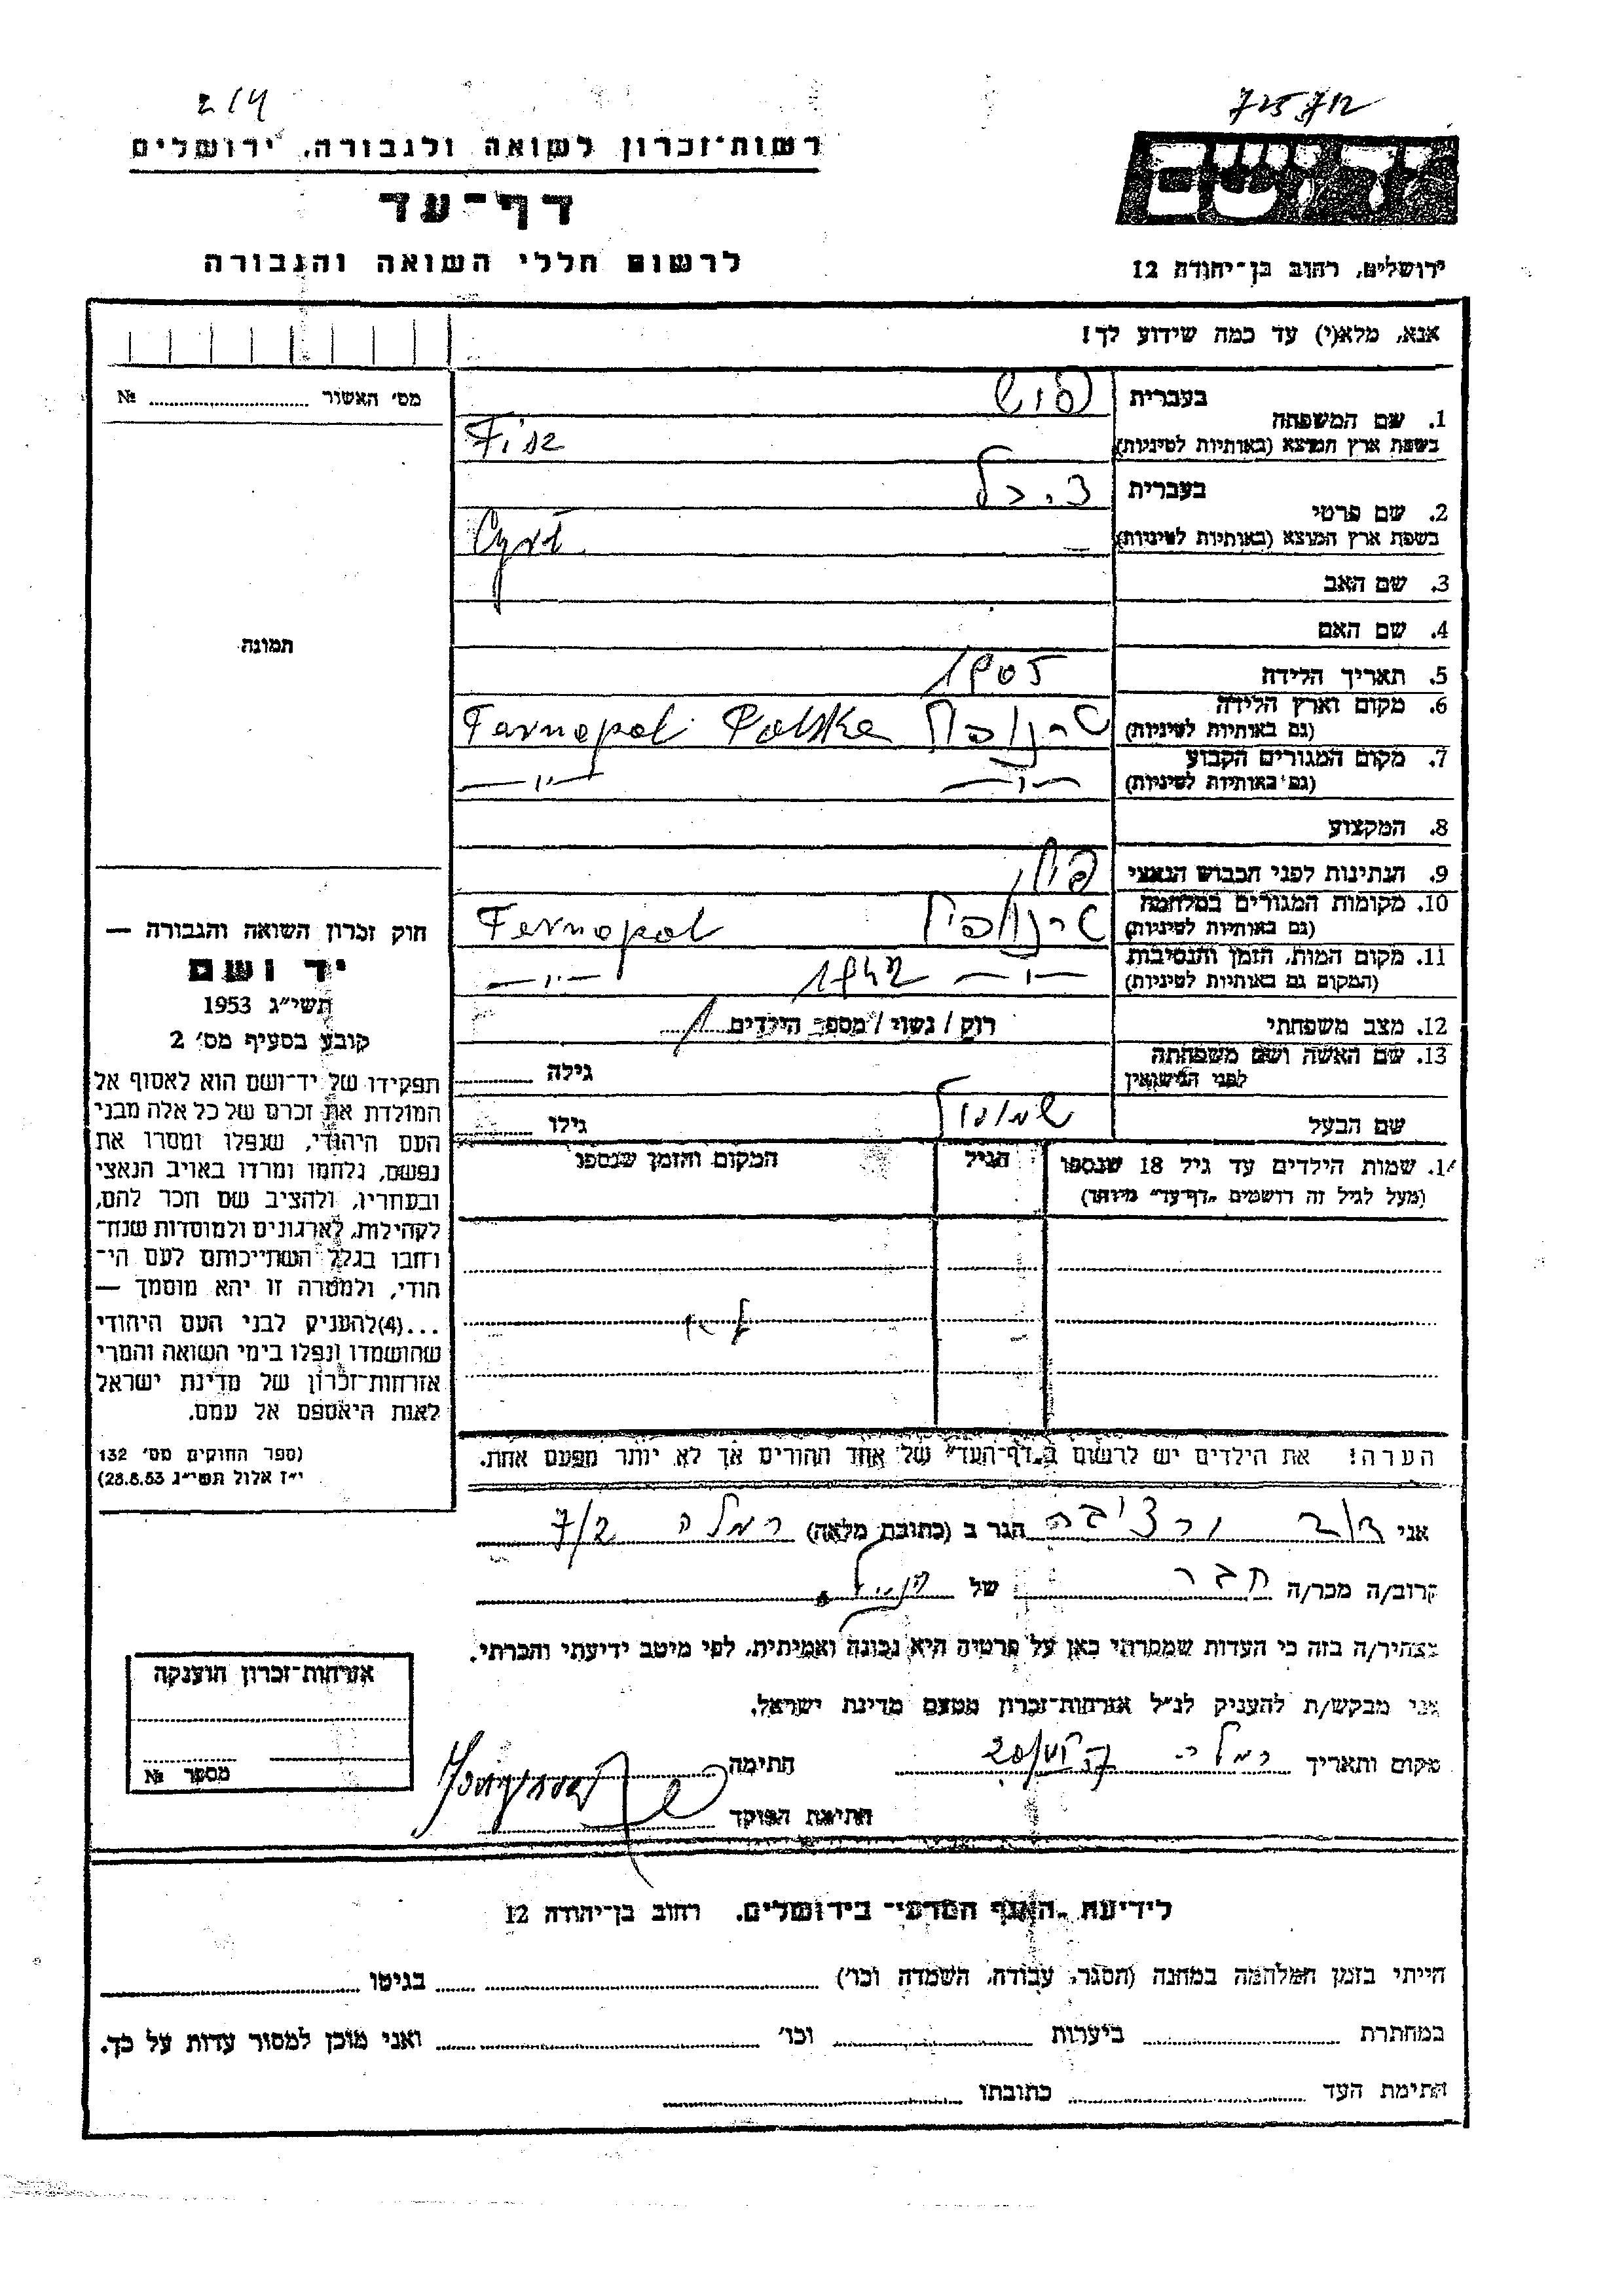 2/4
725712
רשות־זכרון לשואה ולגבורה, ירושלים
דף־עד
לרשום חללי השואה והגבורה
יד ושם
ירושלים, רחוב בן־יהודה 12
אנא, מלא(י) עד כמה שידוע לך!
מס׳ האשור № 
תמונה
בעברית
1. שם המשפחה
בשפת ארץ המוצא (באותיות לטיניות)
פיש
Fisz
בעברית
2. שם פרטי
בשפת ארץ המוצא (באותיות לטיניות)
3. שם האב
4. שם האם
5. תאריך הלידה 1905
6. מקום וארץ הלידה
(גם באותיות לטיניות)
טרנופול Tarnopol Polska
7. מקום המגורים הקבוע
(גם באותיות לטיניות)
—״— —״—
8. המקצוע
9. הנתינות לפני הכבוש הנאצי
10. מקומות המגורים במלחמה
(גם באותיות לטיניות)
טרנופול Tarnopol
11. מקום המות, הזמן והנסיבות
(המקום גם באותיות לטיניות)
—״— 1942 —״—
12. מצב משפחתי רוק / נשוי / מספר הילדים 1
13. שם האשה ושם משפחתה
לפני הנישואין
גילה
שם הבעל
גילו
14. שמות הילדים עד גיל 18 שנספו
(מעל לגיל זה רושמים „דף־עד״ מיוחד)
הגיל
המקום והזמן שנספו
הערה! את הילדים יש לרשום ב„דף־העד״ של אחד ההורים אך לא יותר מפעם אחת.
חוק זכרון השואה והגבורה —
יד ושם
תשי״ג 1953
קובע בסעיף מס׳ 2
תפקידו של יד־ושם הוא לאסוף אל
המולדת את זכרם של כל אלה מבני
העם היהודי, שנפלו ומסרו את
נפשם, נלחמו ומרדו באויב הנאצי
ובעוזריו, ולהציב שם וזכר להם,
לקהילות, לארגונים ולמוסדות שנח־
רבו בגלל השתייכותם לעם הי־
הודי, ולמטרה זו יהא מוסמך —
...(4)להעניק לבני העם היהודי
שהושמדו ונפלו בימי השואה והמרי
אזרחות־זכרון של מדינת ישראל
לאות היאספם אל עמם.
(ספר החוקים מס׳ 132
י״ז אלול תשי״ג 28.8.53)
אני הגר ב (כתובת מלאה) רמלה 7/2
קרוב/ה מכר/ה חבר של הנ״ל
מצהיר/ה בזה כי העדות שמסרתי כאן על פרטיה היא נכונה ואמיתית, לפי מיטב ידיעתי והכרתי.
אני מבקש/ת להעניק לנ״ל אזרחות־זכרון מטעם מדינת ישראל.
מקום ותאריך רמלה חתימה
חתימת הפוקד
אזרחות־זכרון הוענקה
מספר №
לידיעת „האגף המדעי״ בירושלים, רחוב בן־יהודה 12
הייתי בזמן המלחמה במחנה (הסגר, עבודה, השמדה וכו׳) בגיטו
במחתרת ביערות וכו׳ ואני מוכן למסור עדות על כך.
חתימת העד כתובתו